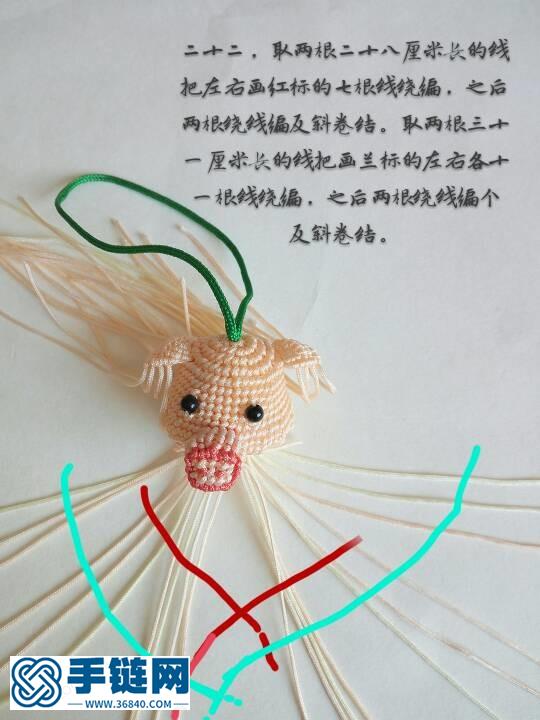 二十二，取两根二十八厘米长的线
把左右画红标的七根线绕编，之后
两根绕线编反斜卷结。取两根三十
一厘米长的线把画兰标的左右各十
一根线绕编，之后两根绕线编个
反斜卷结。
手链网
WWW.36840.COM